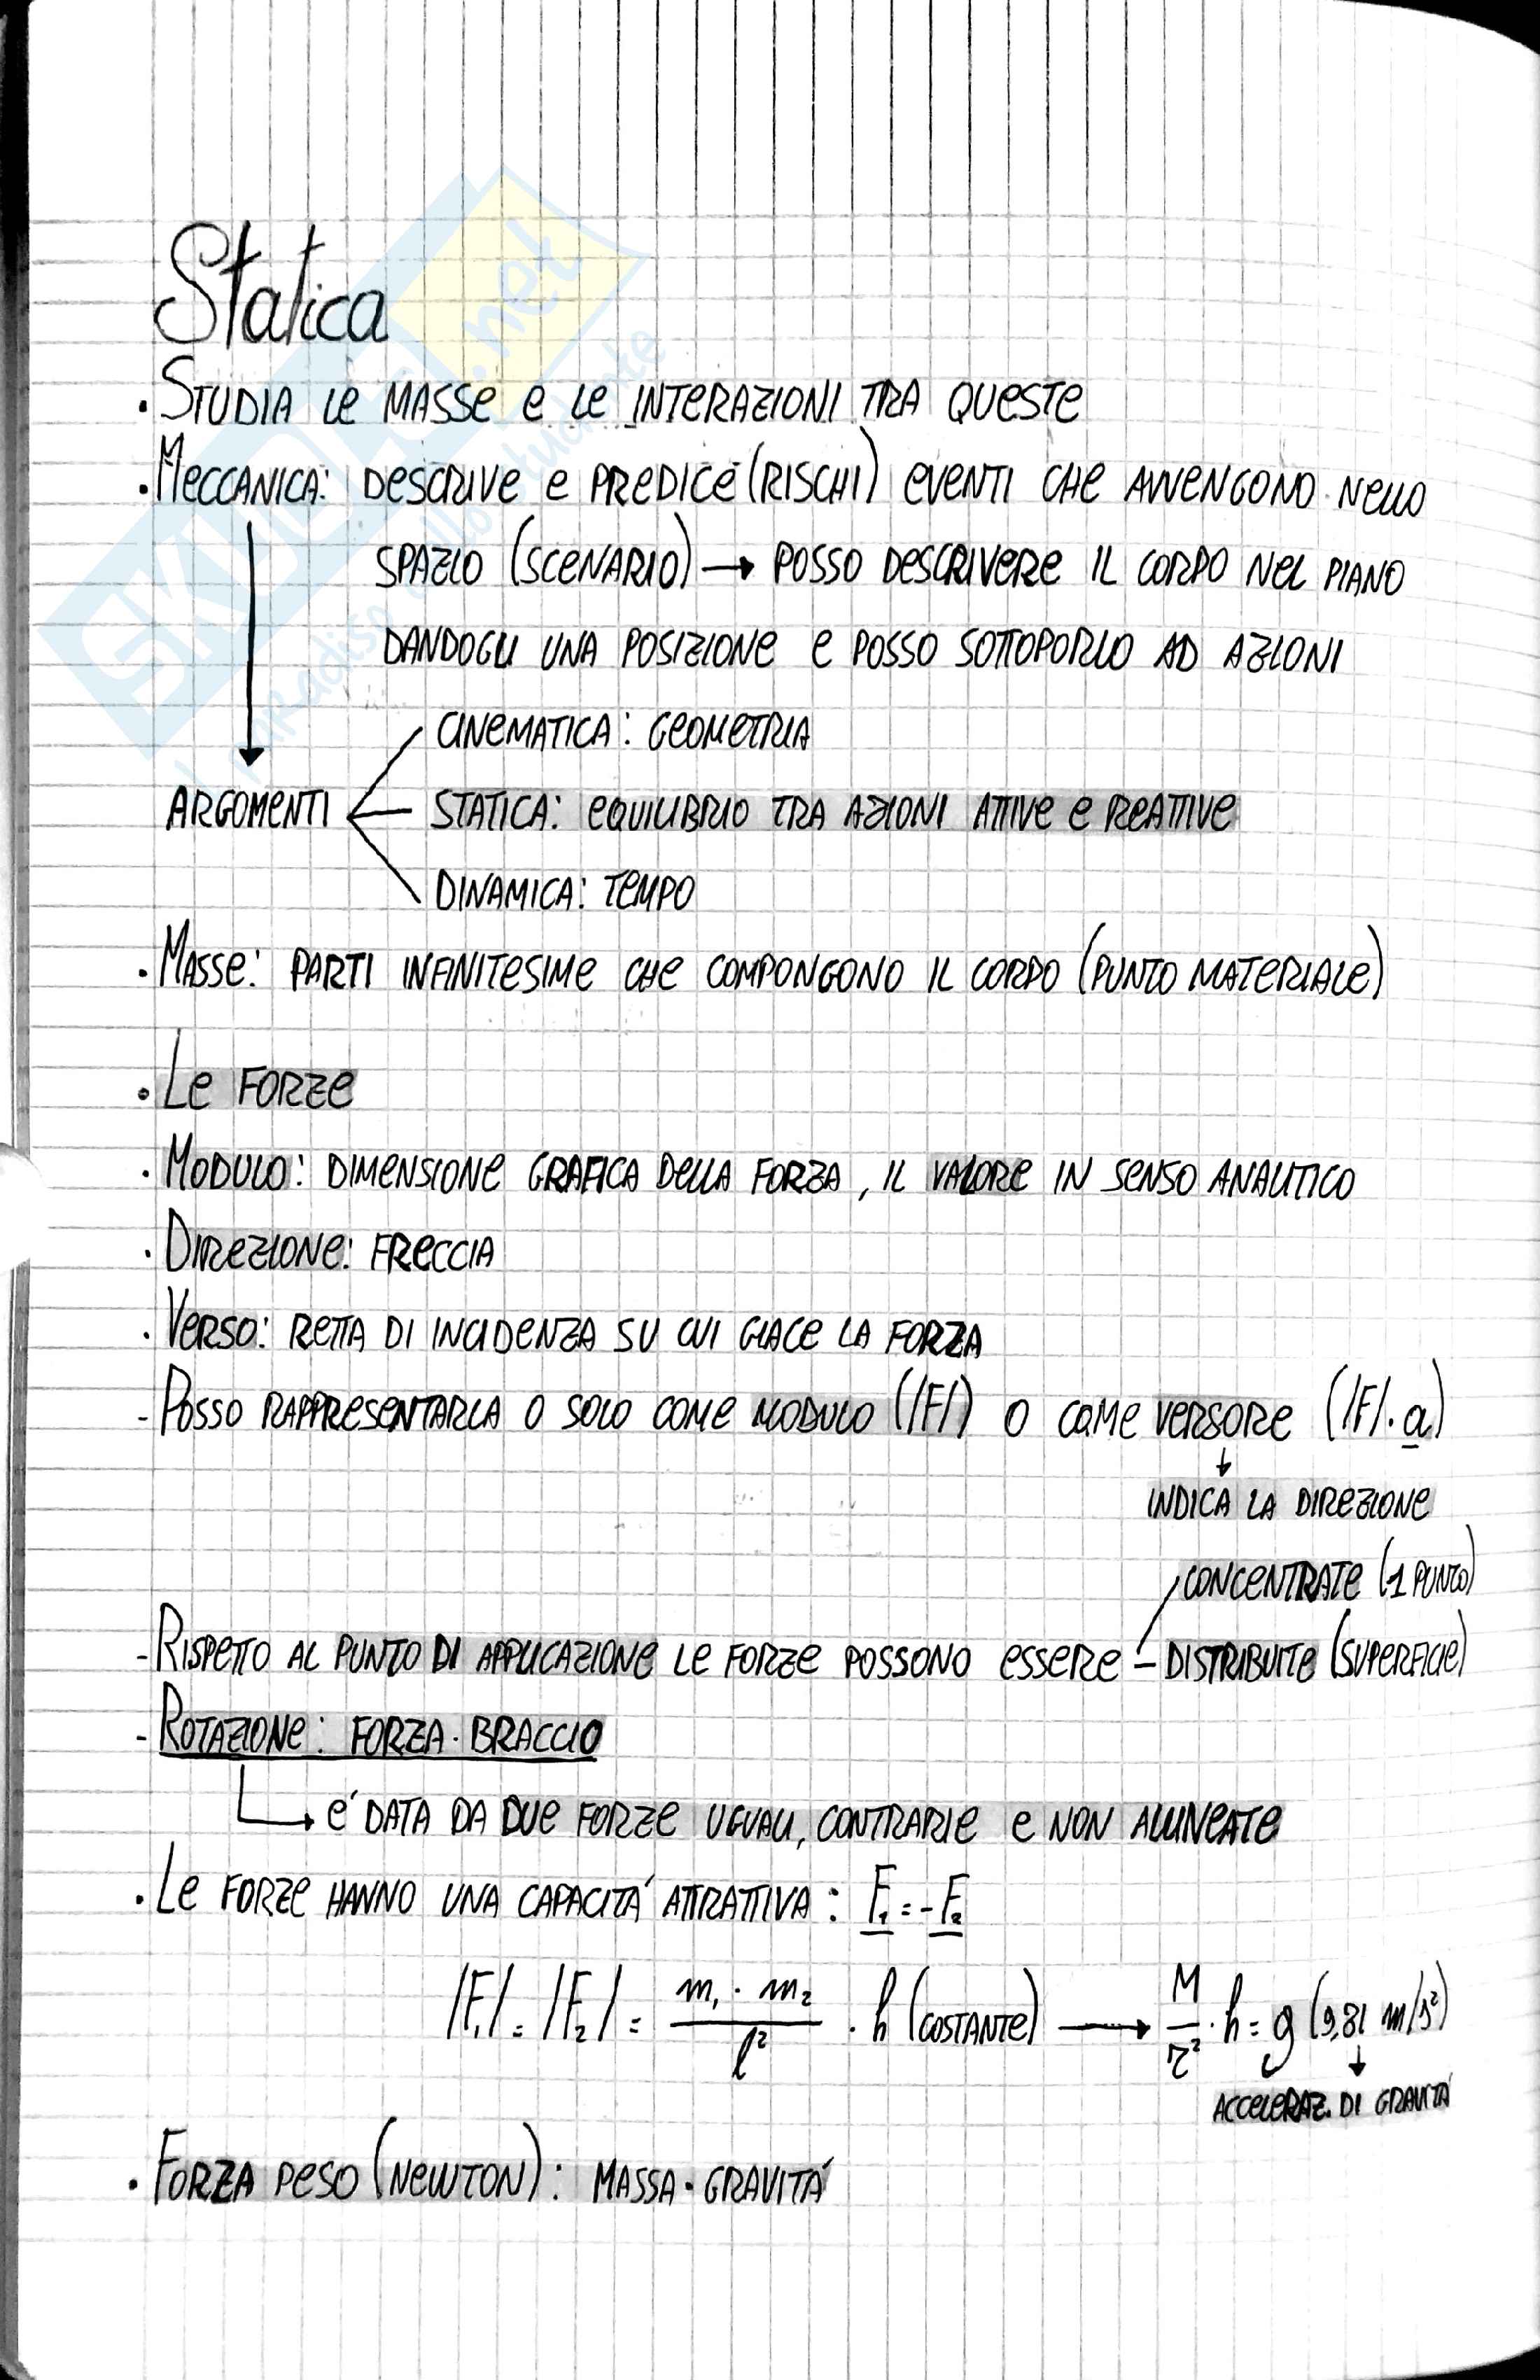 Statica
. STUDIA LE MASSE E LE INTERAZIONI TRA QUESTE
. MECCANICA: DESCRIVE E PREDICE (RISCHI) EVENTI CHE AVVENGONO NELLO
SPAZIO (SCENARIO) → POSSO DESCRIVERE IL CORPO NEL PIANO
DANDOGLI UNA POSIZIONE E POSSO SOTTOPORLO AD AZIONI
CINEMATICA: GEOMETRIA
ARGOMENTI STATICA: EQUILIBRIO TRA AZIONI ATTIVE E REATTIVE
DINAMICA: TEMPO
. MASSE: PARTI INFINITESIME CHE COMPONGONO IL CORPO (PUNTO MATERIALE)
. LE FORZE
. MODULO: DIMENSIONE GRAFICA DELLA FORZA, IL VALORE IN SENSO ANALITICO
. DIREZIONE: FRECCIA
. VERSO: RETTA DI INCIDENZA SU CUI GIACE LA FORZA
- POSSO RAPPRESENTARLA O SOLO COME MODULO (|F|) O COME VERSORE (|F|·a)
↓
INDICA LA DIREZIONE
CONCENTRATE (1 PUNTO)
- RISPETTO AL PUNTO DI APPLICAZIONE LE FORZE POSSONO ESSERE – DISTRIBUITE (SUPERFICIE)
- ROTAZIONE: FORZA · BRACCIO
→ E' DATA DA DUE FORZE UGUALI, CONTRARIE E NON ALLINEATE
. LE FORZE HANNO UNA CAPACITÁ ATTRATTIVA: F₁ = -F₂
|F₁| = |F₂| = m₁ · m₂ / l² · h (COSTANTE) → M / r² · h = g (9,81 m/s²)
ACCELERAZ. DI GRAVITÁ
. FORZA PESO (NEWTON): MASSA · GRAVITÁ
SKUOLA.net
il paradiso dello studente